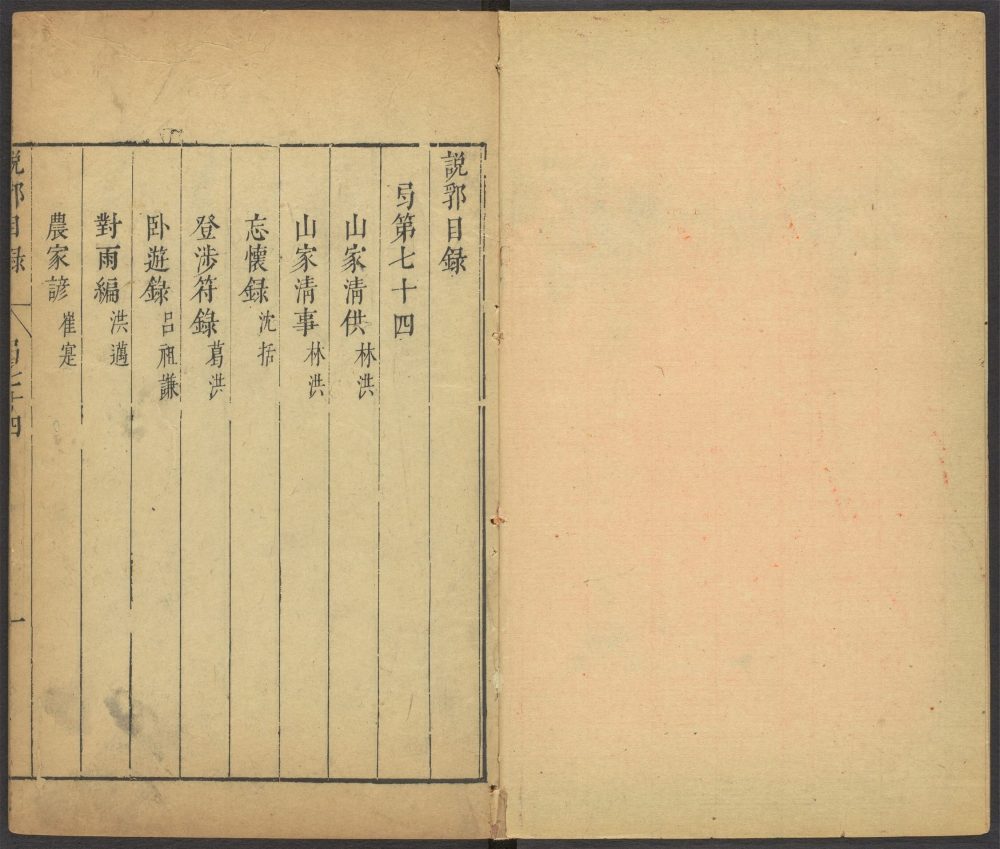 説郛目録
弓第七十四
山家清供 林洪
山家清事 林洪
忘懷録 沈括
登涉符錄 葛洪
卧遊錄 吕祖謙
對雨編 洪邁
農家諺 崔寔
説郛目録
弓七十四
一